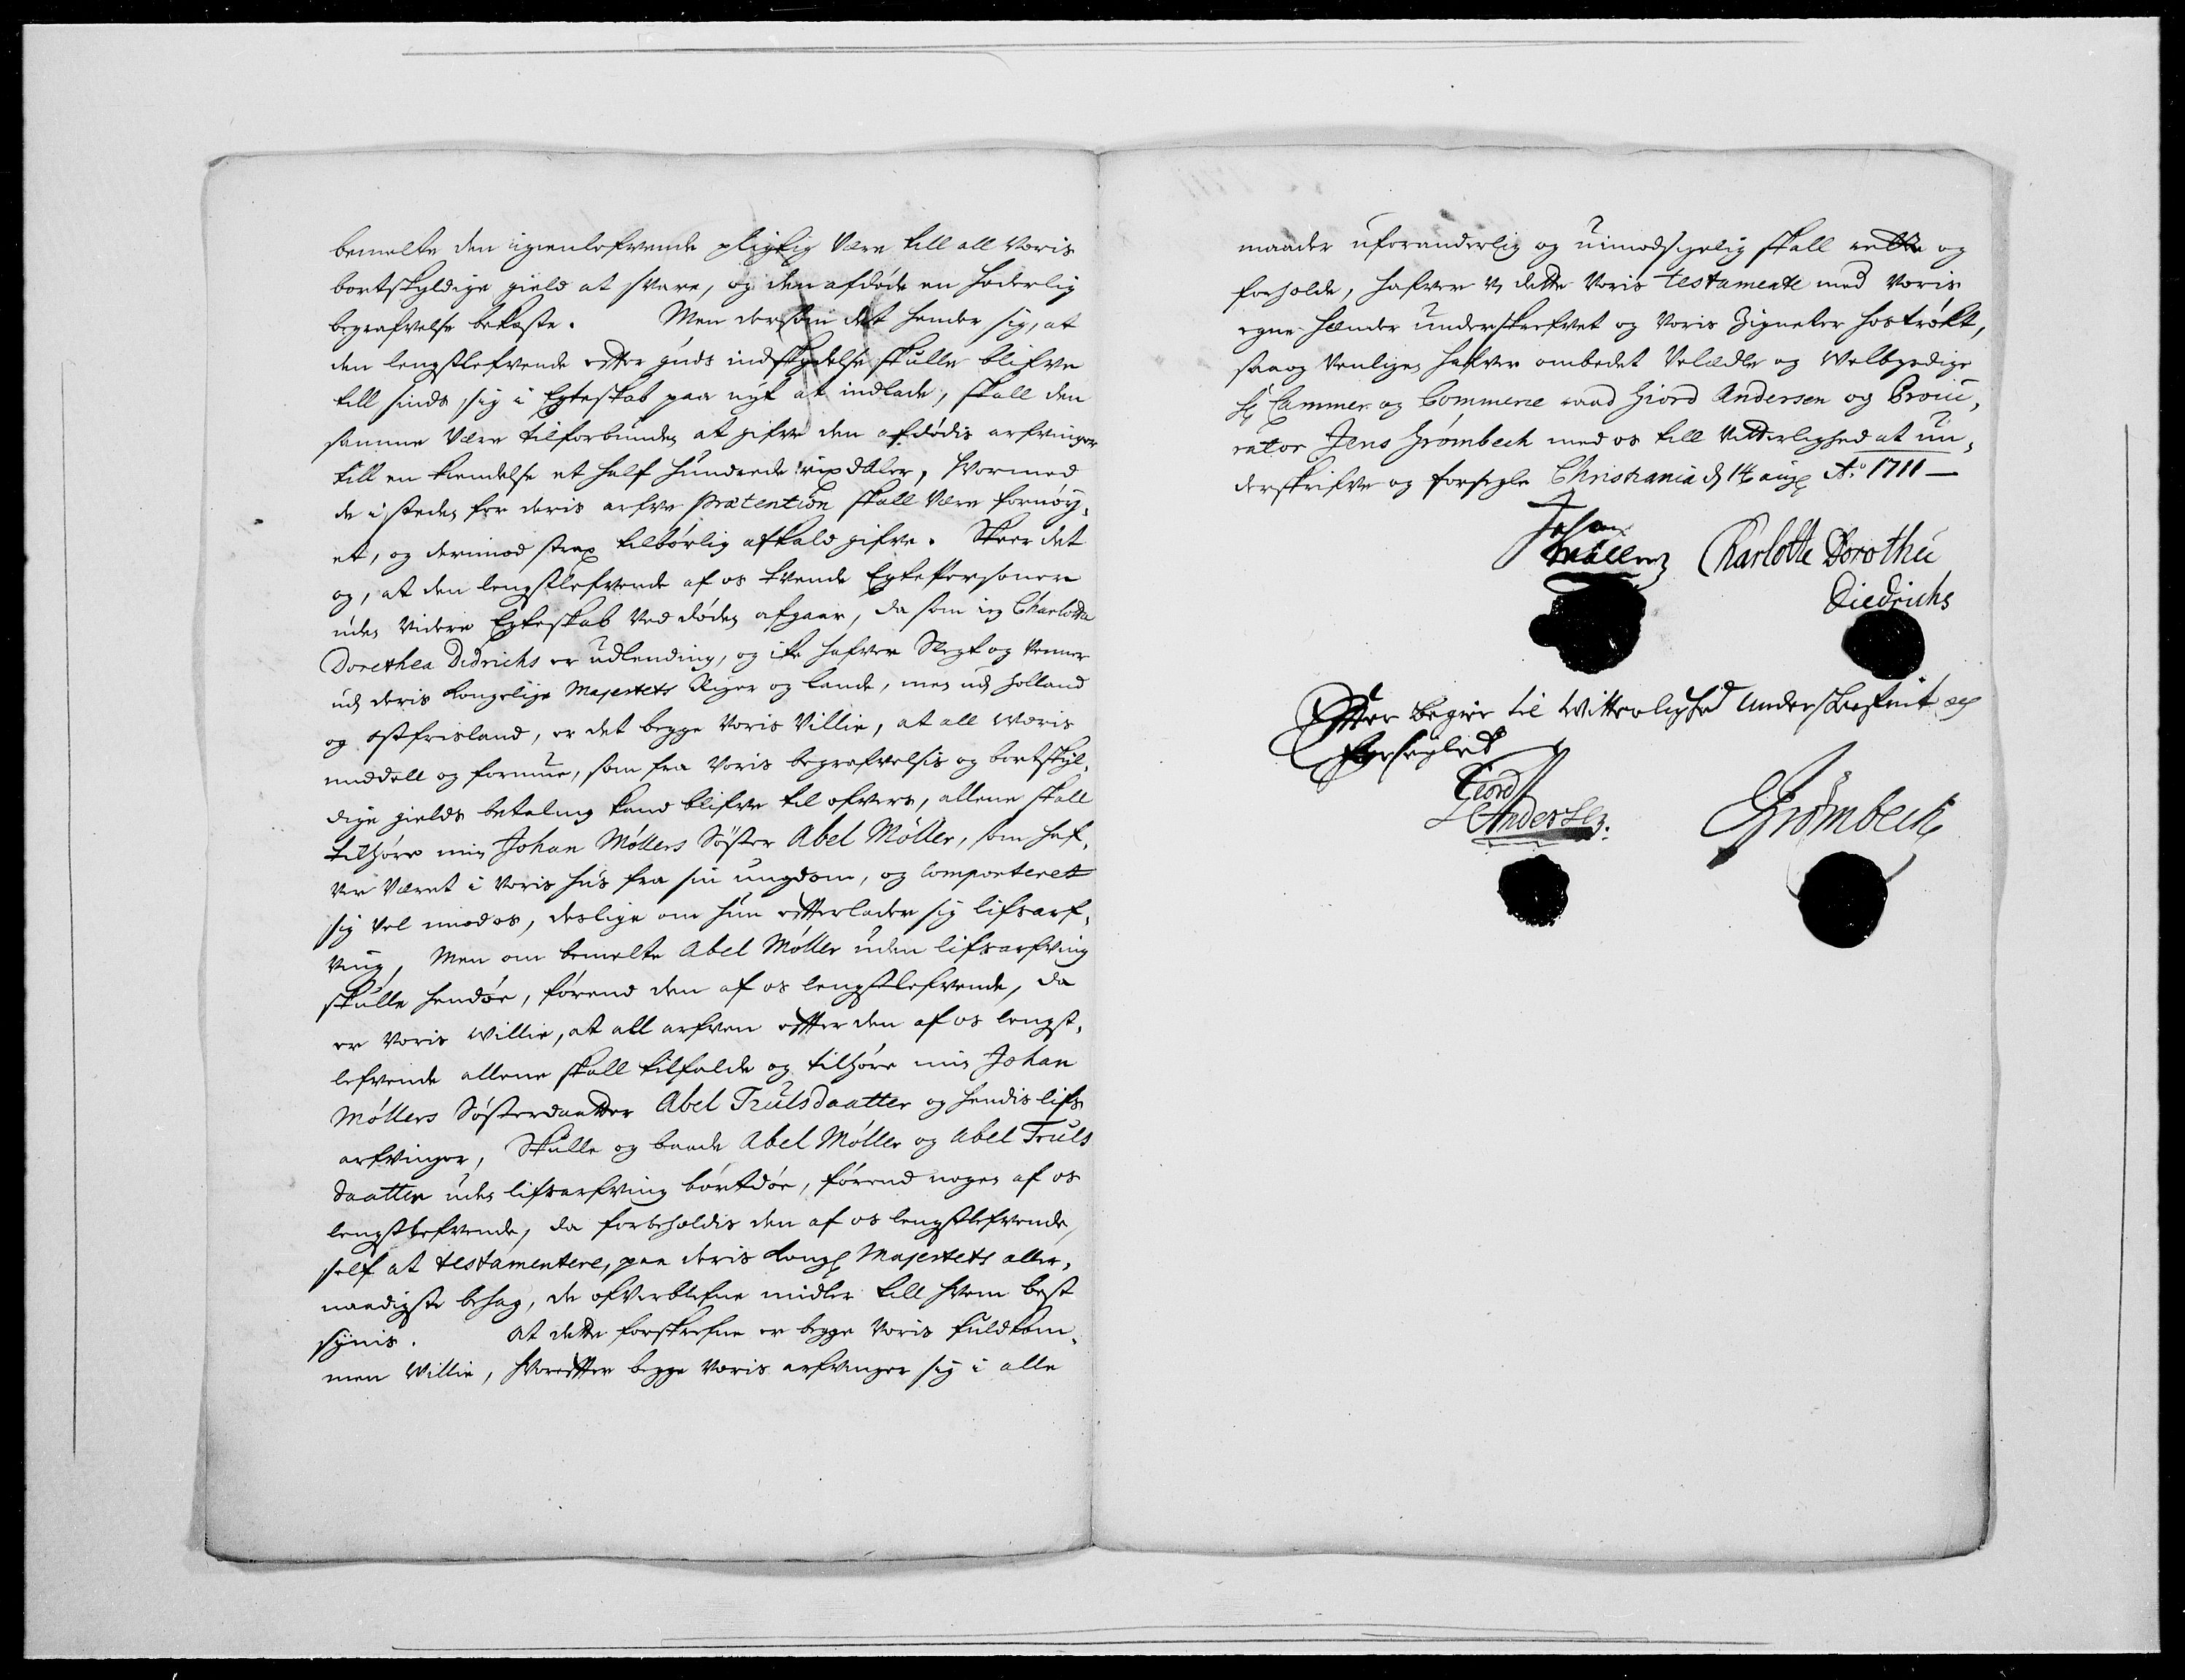 bemelte den igienlefvende pligtig være till all voris
bortskyldige gield at svare, og den afdøde en hæderlig
begrafvelse bekoste. Men dersom det hender sig, at
den lengstlefvende efter guds indskydelse skulle blifve
till sinds, sig i Egteskab paa nyt at indlade, skall den
samme være tilforbunden at gifve den afdødis arfvinger
till en kiendelse et half hundrede rixdaler, hvormed
de i steden for deris arfve prætention skall være fornøy,
et, og derimod strax tilbørlig afkald gifve. Skeer det
og, at den lengstlefvende af os tvende Egtepersoner
uden videre Egteskab ved døden afgaar, da som ieg Charlotta
Dorethea Didrichs er udlending, og ike hafver Slegt og venner
udj deris Kongelige Majestets Riger og lande, men udj Holland
og ostfrisland, er det begge voris villie, at all woris
middell og formue, som fra voris begrafvelsis og bortskyl,
dige gields betaling kand blifve til ofvers, allene skall
tilhøre min Johan Møllers Søster Abel Møller, som haf,
ver været i voris hus fra sin ungdom, og comporteret
sig vel mod os, deslige om hun efterlader sig lifsarf,
ving, Men om bemelte Abel Møller uden lifsarfving
skulle hendøe, førend den af os lengstlefvende, da
er voris willie, at all arfven efter den af os lengst,
lefvende allene skall tilfalde og tilhøre min Johan
Møllers Søsterdaatter Abel Trulsdaatter og hendis lifs
arfvinger, Skulle og baade Abel Møller og Abel Truls
daatter uden lifsarfving bortdøe, førend nogen af os
lengstlefvende, da forbeholdis den af os lengstlefvende,
self at testamentere, paa deris Kongl Majestets aller,
naadigste behag, de ofverblefne midler till hvem best
synis. At dette forskrefne er begge voris fuldkom,
men villie, hvorefter begge voris arfvinger sig i alle
maader uforanderlig og uimodsigelig skall rette og
forholde, hafver vj dette voris testamente med voris
egne hænder underskrefvet og voris Zigneter hostrøkt,
saa og venligen hafver ombedet velædle og welbyrdige
Hr Cammer og Commerce raad Giord Andersen og Procu,
rator Jens Grømbech med os till vitterlighed at un,
derskrifve og forsegle Christiania d 14 augl Ao 1711 —
Johan
Møller
Charlotte Dorothee
Diedrichs
Efter begier til Witterlighed underskrefvit og
forseglet
Giord
Andersen.
JGrømbech